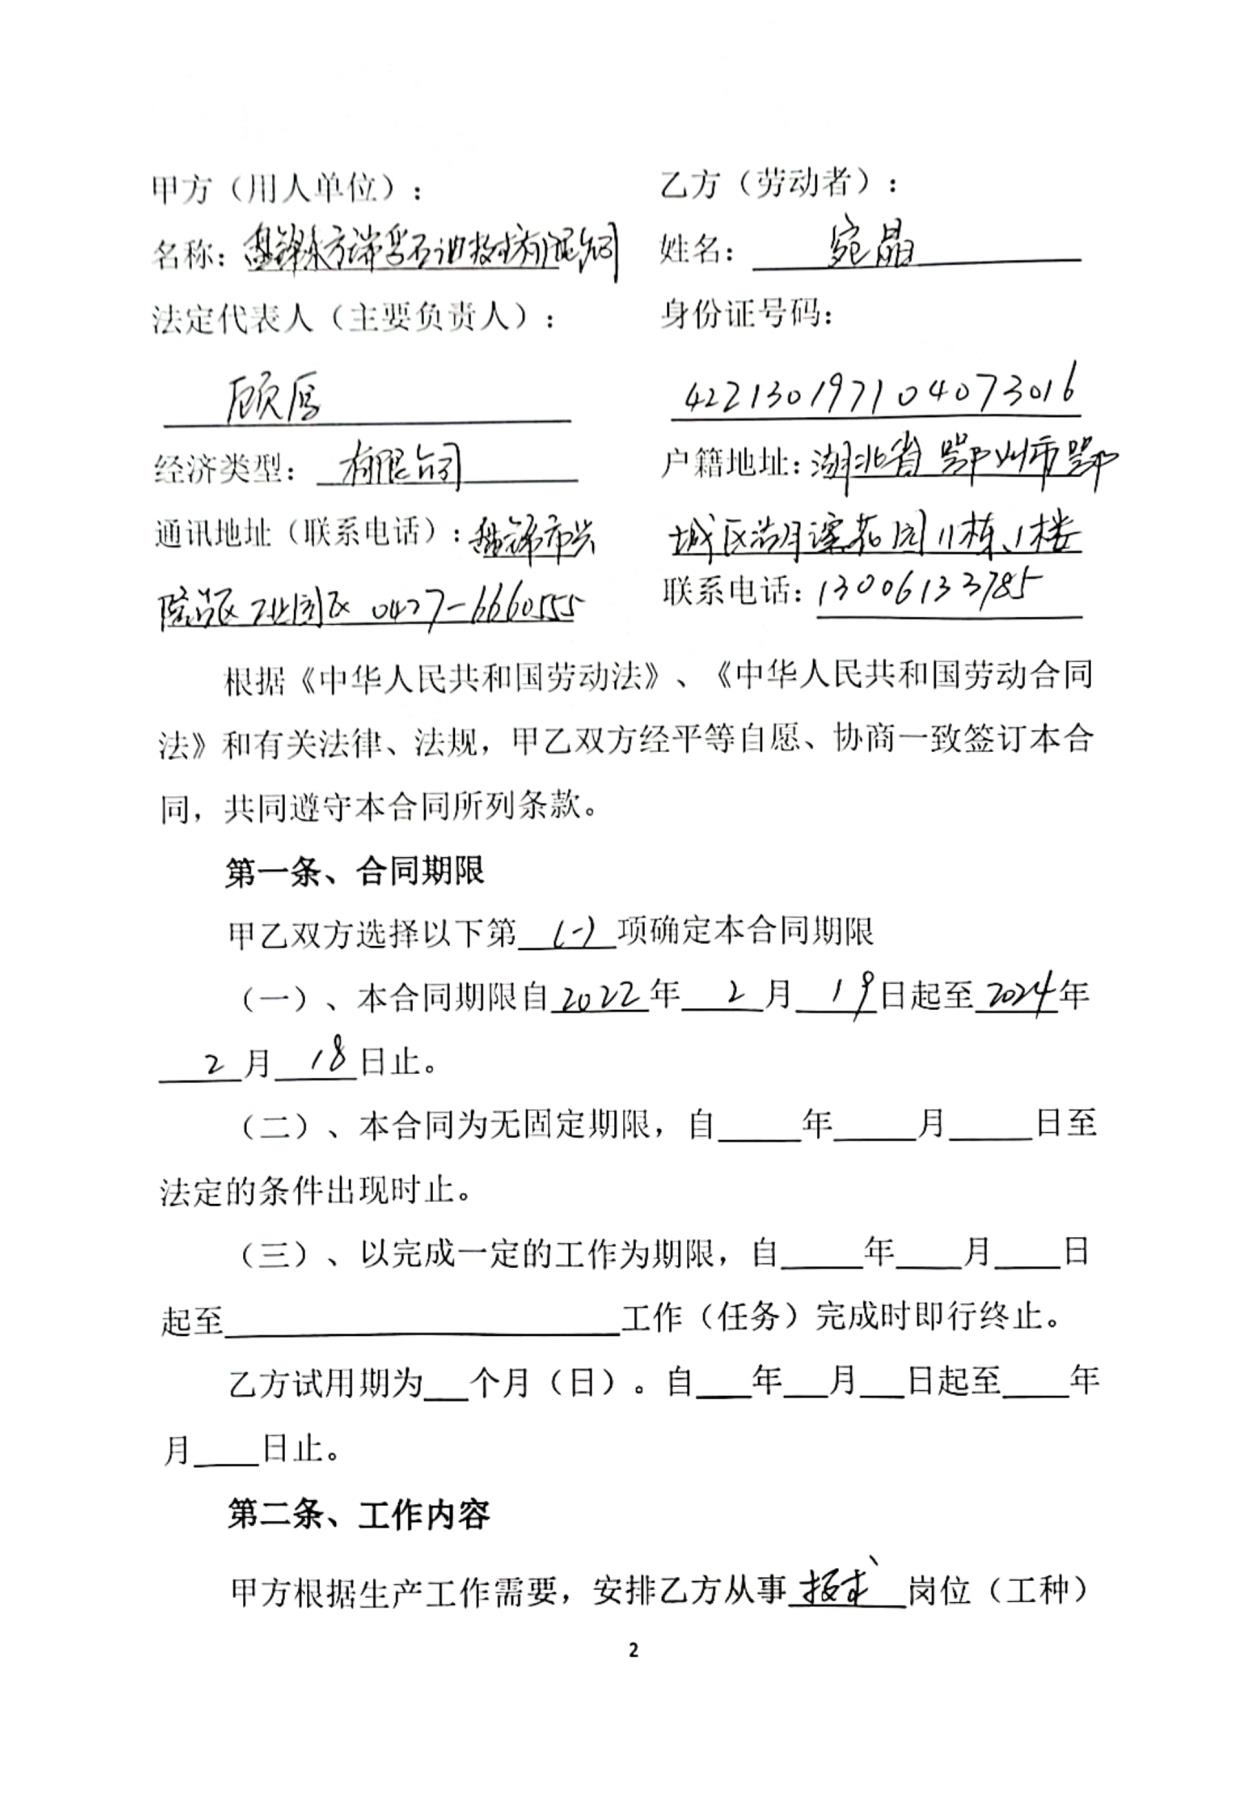 甲方（用人单位）：
乙方（劳动者）：
名称：盘锦东方瑞孚石油技术有限公司
姓名：宛晶
法定代表人（主要负责人）：
身份证号码：
顾
422130197104073016
经济类型：有限公司
户籍地址：湖北省鄂州市鄂
通讯地址（联系电话）：盘锦市兴
城区湖月花园11栋、1楼
隆台区工业园区 0427-6660555
联系电话：13006133785
根据《中华人民共和国劳动法》、《中华人民共和国劳动合同
法》和有关法律、法规，甲乙双方经平等自愿、协商一致签订本合
同，共同遵守本合同所列条款。
第一条、合同期限
甲乙双方选择以下第(一)项确定本合同期限
（一）、本合同期限自2022年2月19日起至2024年
2月18日止。
（二）、本合同为无固定期限，自_____年_____月_____日至
法定的条件出现时止。
（三）、以完成一定的工作为期限，自_____年____月____日
起至________________________工作（任务）完成时即行终止。
乙方试用期为___个月（日）。自___年___月___日起至____年
月____日止。
第二条、工作内容
甲方根据生产工作需要，安排乙方从事技术岗位（工种）
2